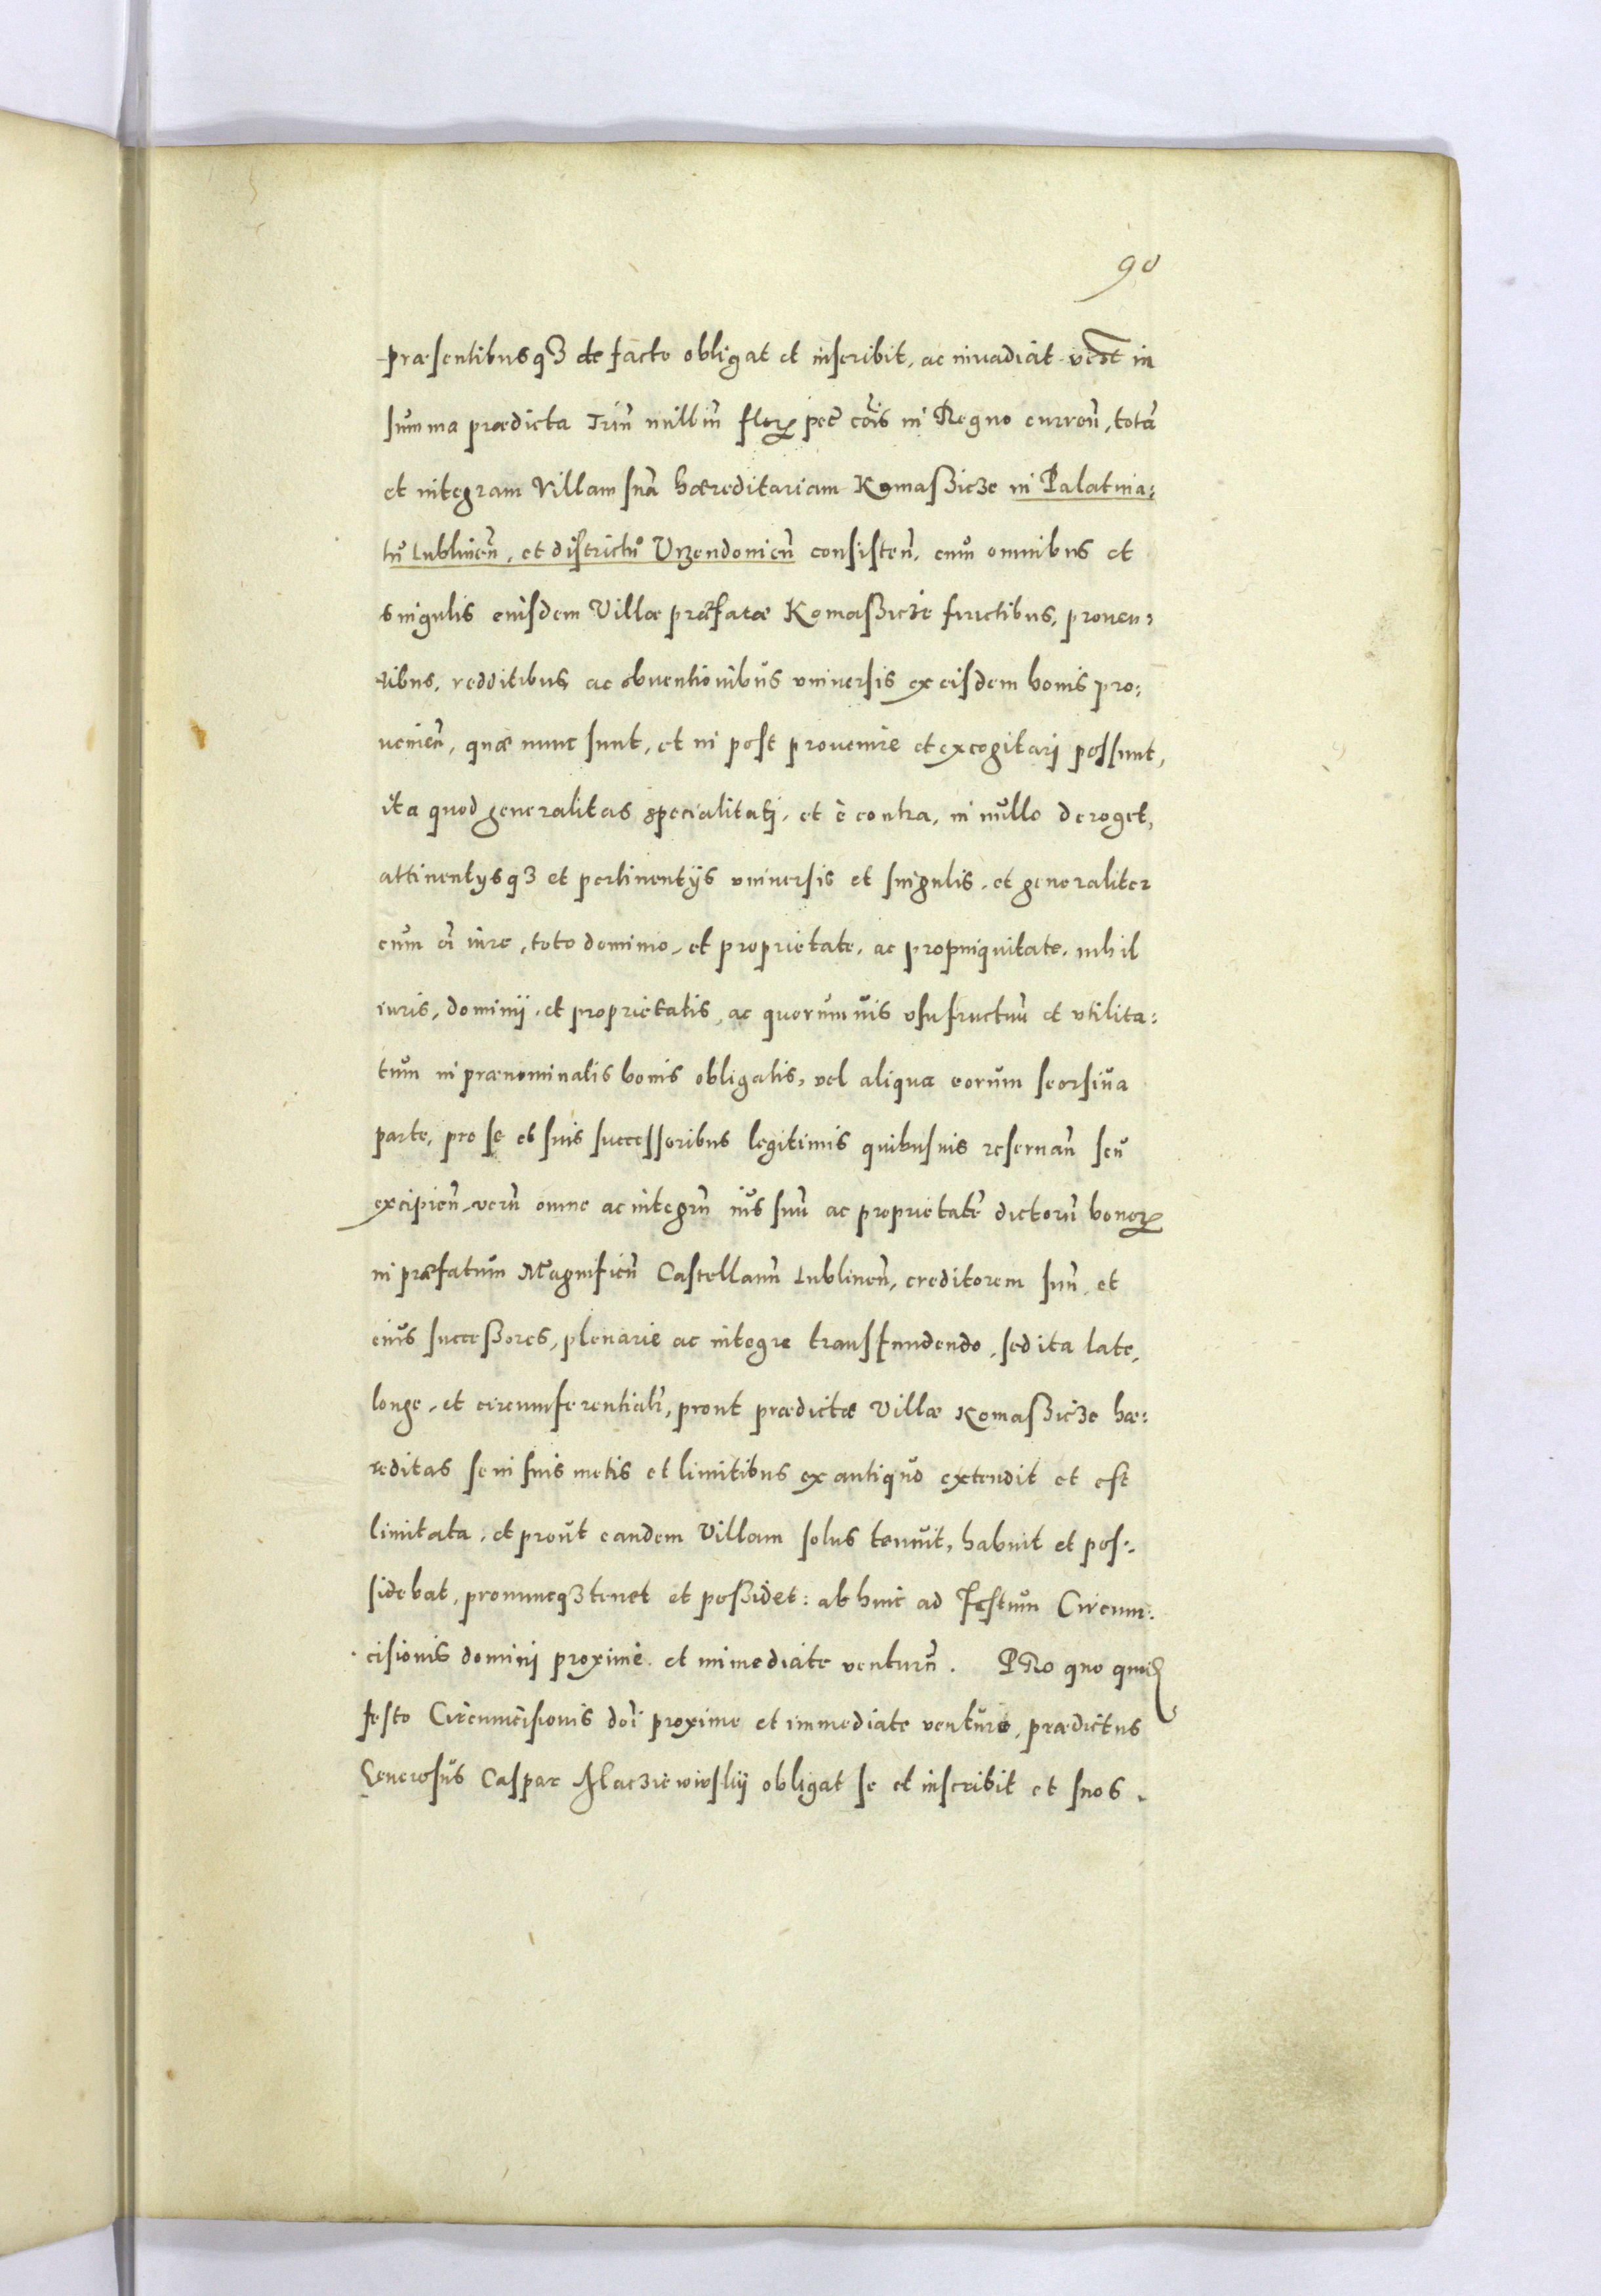 90
præsentibusq3 de facto obligat et inscribit, ac inuadiat in
summa prædicta Triũ milliũ flor pec̃ cõis in Regno curreñ, totã
et integram Villam suã hæreditariam Komaßicze in Palatina:
tũ Lublineñ, et districtũ Vrzendonieñ consisteñ, cum omnibus et
singulis eiusdem Villæ præfatæ Komaßicze fructibus, prouen:
tibus, redditibus, ac obuentionibus vniuersis ex eisdem bonis pro:
uenieñ, quæ nunc sunt, et in post prouenire et excogitarj possunt,
ita quod generalitas specialitatj, et è contra, in nullo deroget,
attinentysq3 et pertinentijs vniuersis et singulis, et generaliter
cum oĩ iure, toto dominio, et proprietate, ac propinquitate, nihil
iuris, dominij, et proprietatis, ac quorumuis vsufructuũ et vtilita:
tum in prænominatis bonis obligatis, vel aliqua eorum seorsiua
parte, pro se et suis successoribus legitimis quibusuis reseruañ seu
excipieñ, verũ omne ac integrũ ius suũ ac proprietatẽ dictorũ bonor
in præfatum Magnificũ Castellanũ Lublineñ, creditorem suũ, et
eius successores, plenarie ac integre transfundendo, sed ita late,
longe, et circumferentialr, prout prædictæ Villæ Komaßicze hæ:
reditas se in suis metis et limitibus ex antiquo extendit et est
limitata, et prout eandem Villam solus tenuit, habuit et pos:
sidebat, pronuncq3 tenet et poßidet: ab hinc ad Festum Circum:
cisionis dominj proxime et immediate venturũ. PRo quo quid
festo Circumcisionis doĩ proxime et immediate venturo, prædictus
Generosus Caspar obligat se et inscribit et suos.